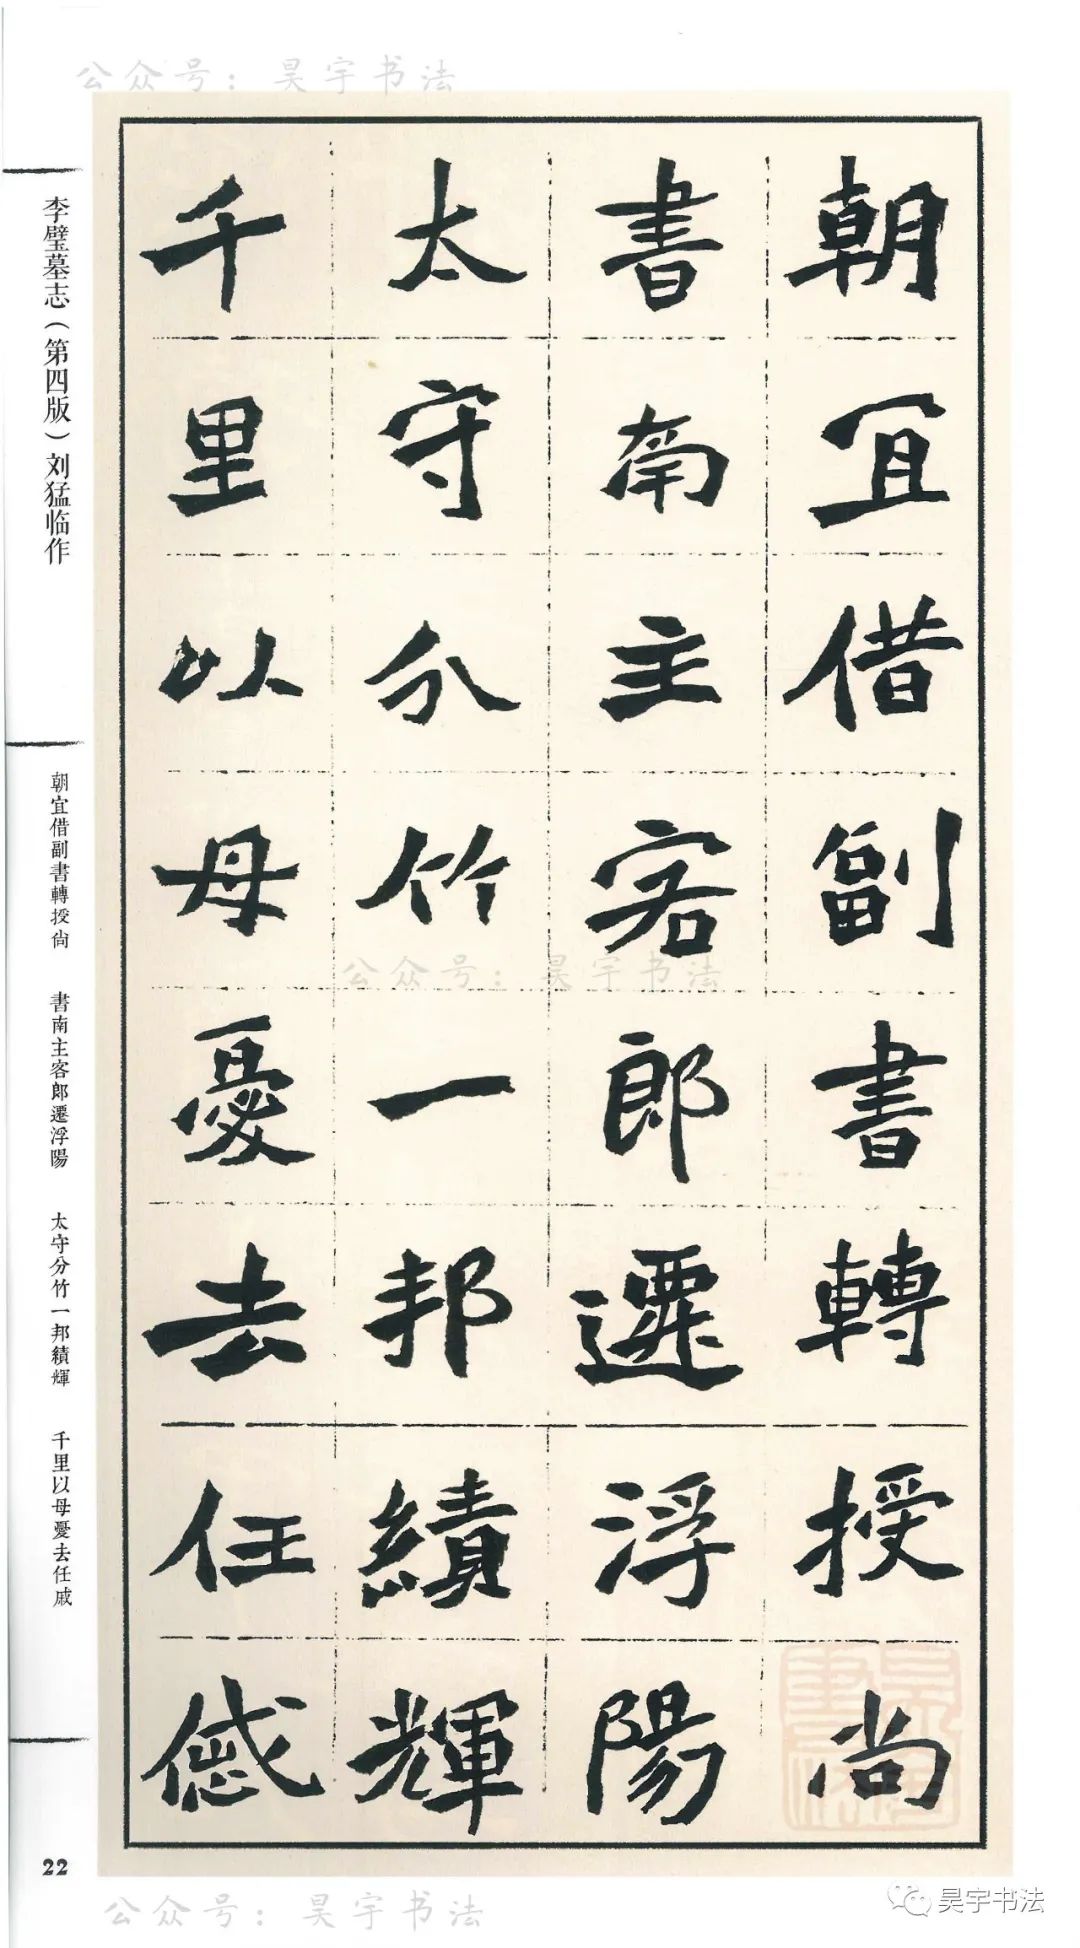 公众号：昊宇书法
朝宜借副書轉授尚
書南主客郎遷浮陽
太守分竹一邦績輝
千里以母憂去任慼
李璧墓志（第四版）刘猛临作
朝宜借副書轉授尚
書南主客郎遷浮陽
太守分竹一邦績輝
千里以母憂去任戚
22
公众号：昊宇书法
公众号：昊宇书法
昊宇书法